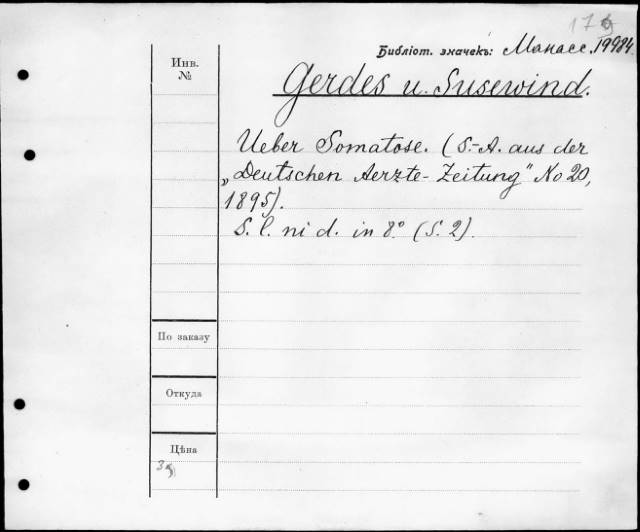 Библіот. значекъ: Манасс. 19984.
Инв.
№
Gerdes u. Susewind.
Ueber Somatose. (S.-A. aus der
„Deutschen Aerzte-Zeitung" No 20,
1895).
S. l. ni d. in 8° (S. 2).
По заказу
Откуда
Цѣна